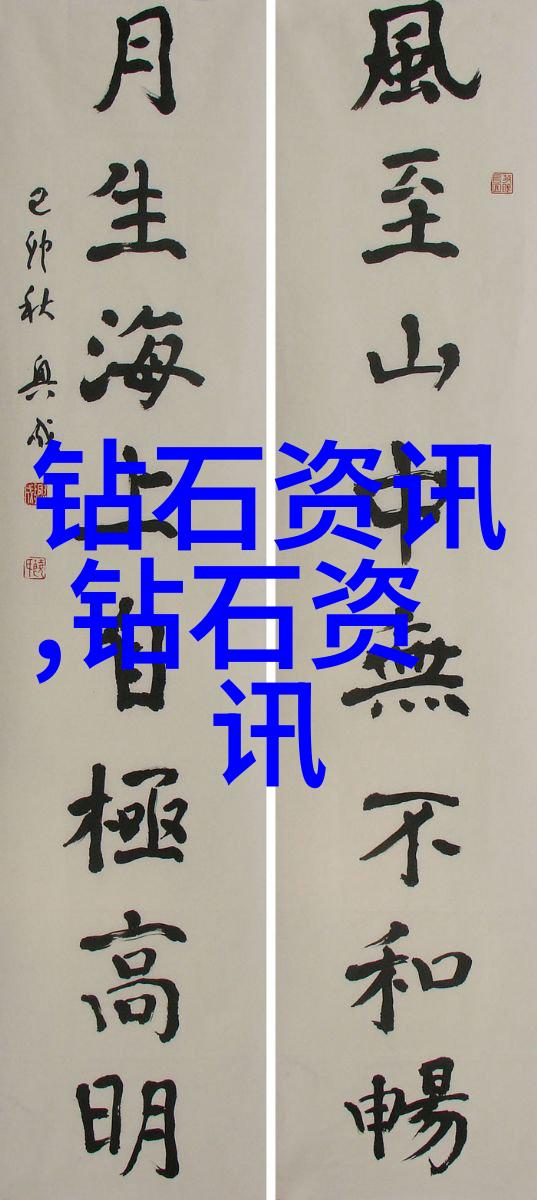 風至山中無不和暢
月生海上自極高明
己卯秋
钻石资讯
,钻石资
讯